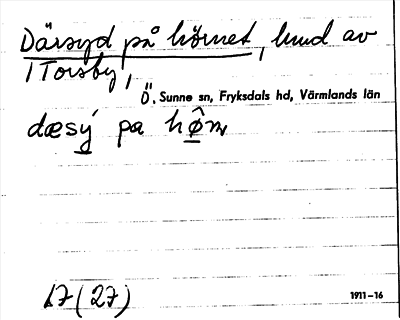 Därsyd på hörnet, kund av
1 Torsby,
Ö. Sunne sn, Fryksdals hd, Värmlands län
dæsy̆́ pa hø̂rṇ
17 (27)
1911–16